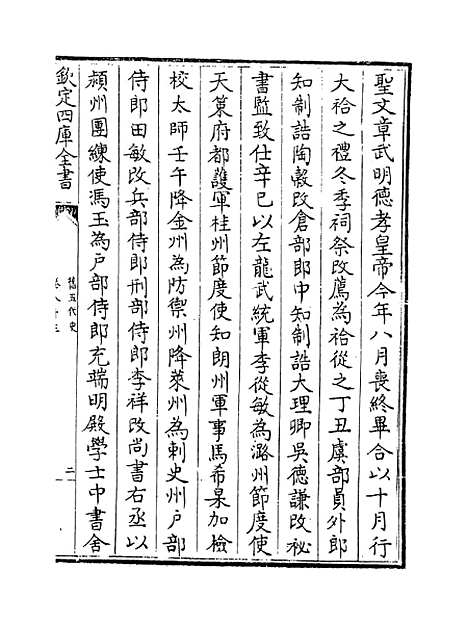 聖文章武明德孝皇帝今年八月喪終畢合以十月行
大祫之禮冬季祠祭改薦為祫從之丁丑虞部員外郎
知制誥陶縠改倉部郎中知制誥大理卿吳德謙改祕
書監致仕辛巳以左龍武統軍李從敏為潞州節度使
天䇿府都護軍桂州節度使知朗州軍事馬希杲加檢
校太師壬午降金州為防禦州降萊州為刺史州户部
侍郎田敏改兵部侍郎刑部侍郎李祥改尚書右丞以
潁州團練使馮玉為户部侍郎充端明殿學士中書舍
欽定四庫全書
舊五代史
卷八十三
二